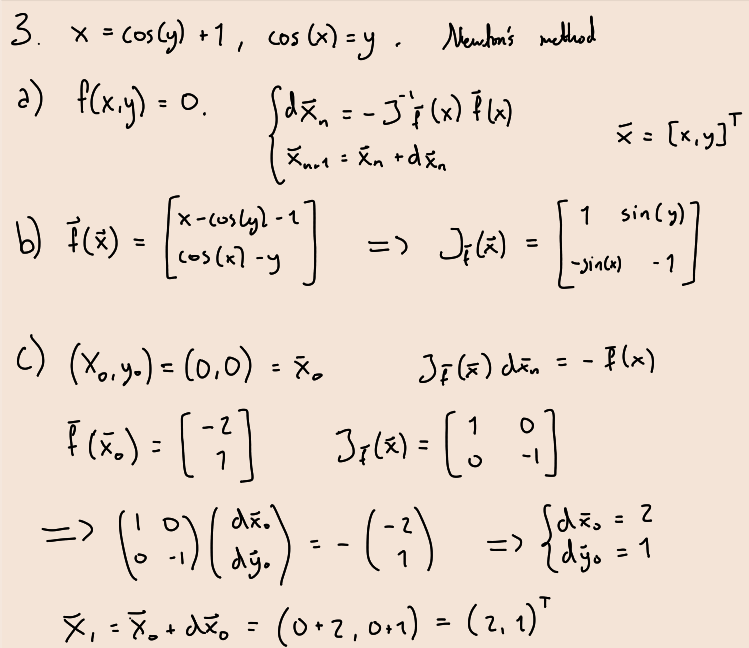 3. x = cos(y) + 1 , cos(x) = y . Newton's method
a) f(x,y) = 0. { dx̄ₙ = - J⁻¹_f̄ (x) f̄(x)
x̄ₙ₊₁ = x̄ₙ + dx̄ₙ
x̄ = [x,y]ᵀ
b) f̄(x̄) = [ x-cos(y)-1 ; cos(x)-y ] => J_f̄(x̄) = [ 1 sin(y) ; -sin(x) -1 ]
c) (x₀,y₀) = (0,0) = x̄₀ J_f̄(x̄) dx̄ₙ = - f̄(x)
f̄(x̄₀) = [ -2 ; 1 ] J_f̄(x̄) = [ 1 0 ; 0 -1 ]
=> ( 1 0 ; 0 -1 ) ( dx̄₀ ; dȳ₀ ) = - ( -2 ; 1 ) => { dx̄₀ = 2
dȳ₀ = 1
x̄₁ = x̄₀ + dx̄₀ = (0+2, 0+1) = (2,1)ᵀ